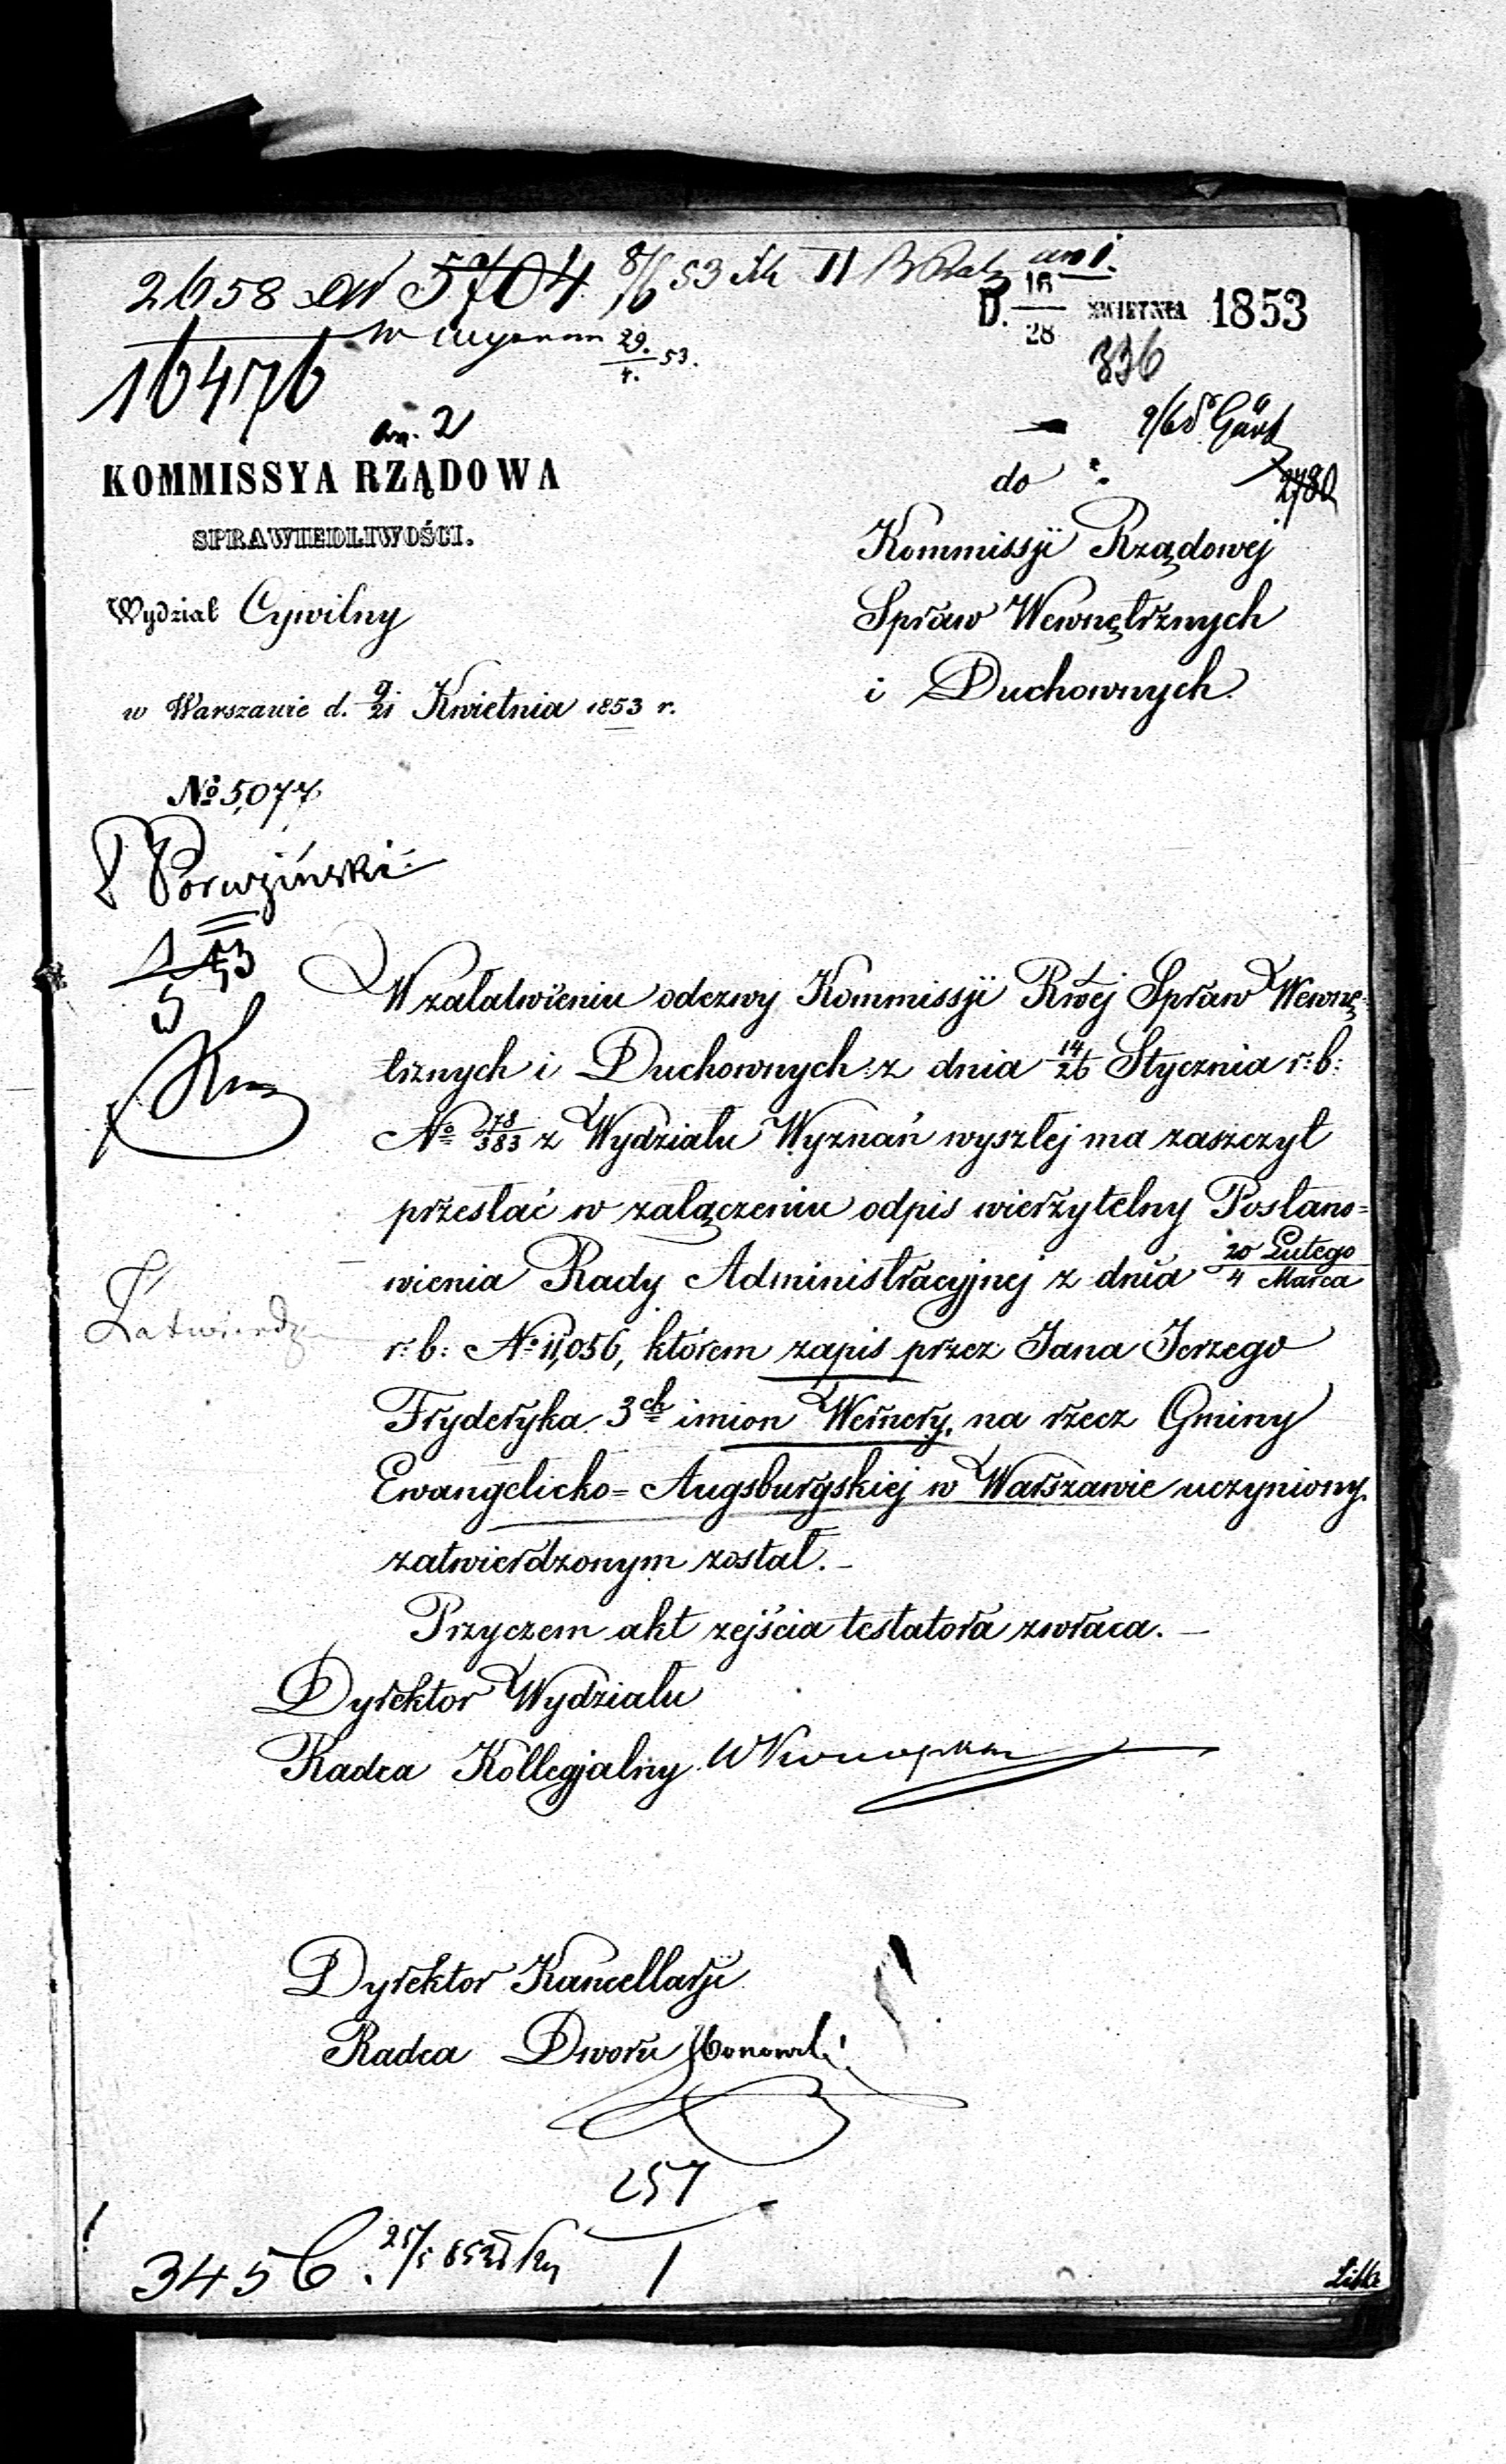 2658 5704 8/6 53 II
16476 w 29./4. 53.
D. 16/28 KWIETNIA 1853
336
2
KOMMISSYA RZĄDOWA
SPRAWIEDLIWOŚCI.
2780
do
Kommissji Rządowej
Spraw Wewnętrznych
i Duchownych
Wydział Cywilny
w Warszawie d. 9/21 Kwietnia 1853 r.
№ 5,077
W załatwieniu odezwy Kommissji Rwej Spraw Wewnę-
trznych i Duchownych z dnia 14/26 Stycznia r: b:
№ 78/383 z Wydziału Wyznań wyszłej ma zaszczyt
przesłać w załączeniu odpis wierzytelny Postano=
wienia Rady Administracyjnej z dnia 20 Lutego/4 Marca
r: b: № 11,056, którem zapis przez Jana Jerzego
Fryderyka 3ch imion Wernery, na rzecz Gminy
Ewangelicko=Augsburgskiej w Warszawie uczyniony,
zatwierdzonym został. –
Przyczem akt zejścia testatora zwraca. –
Dyrektor Wydziału
Radca Kollegjalny
Dyrektor Kancellarji
Radca Dworu
257
1
3456. 25/5